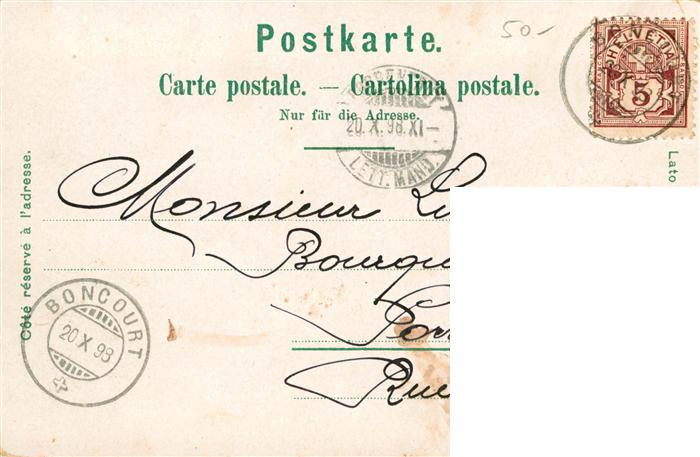 50.-
Postkarte.
Carte postale. — Cartolina postale.
Nur für die Adresse.
HELVETIA
5
20.X.98.XI-
LETT. MAND.
Côté réservé à l'adresse.
Lato
Monsieur
BONCOURT
20 X 98
Rue